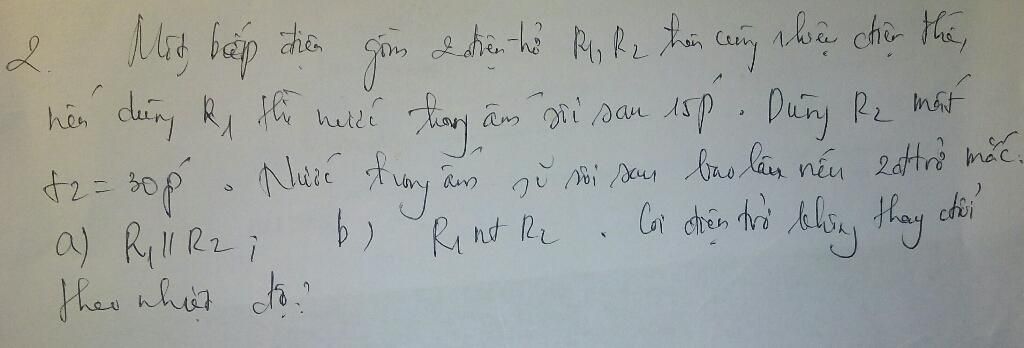 2. Một bếp điện gồm 2 điện trở R1, R2 cùng hiệu điện thế,
nếu dùng R1 thì nước trong ấm sôi sau 15p. Dùng R2 mất
t2 = 30p. Nước trong ấm sẽ sôi sau bao lâu nếu 2 đtrở mắc.
a) R1 // R2 ; b) R1 nt R2. Coi điện trở không thay đổi
theo nhiệt độ?